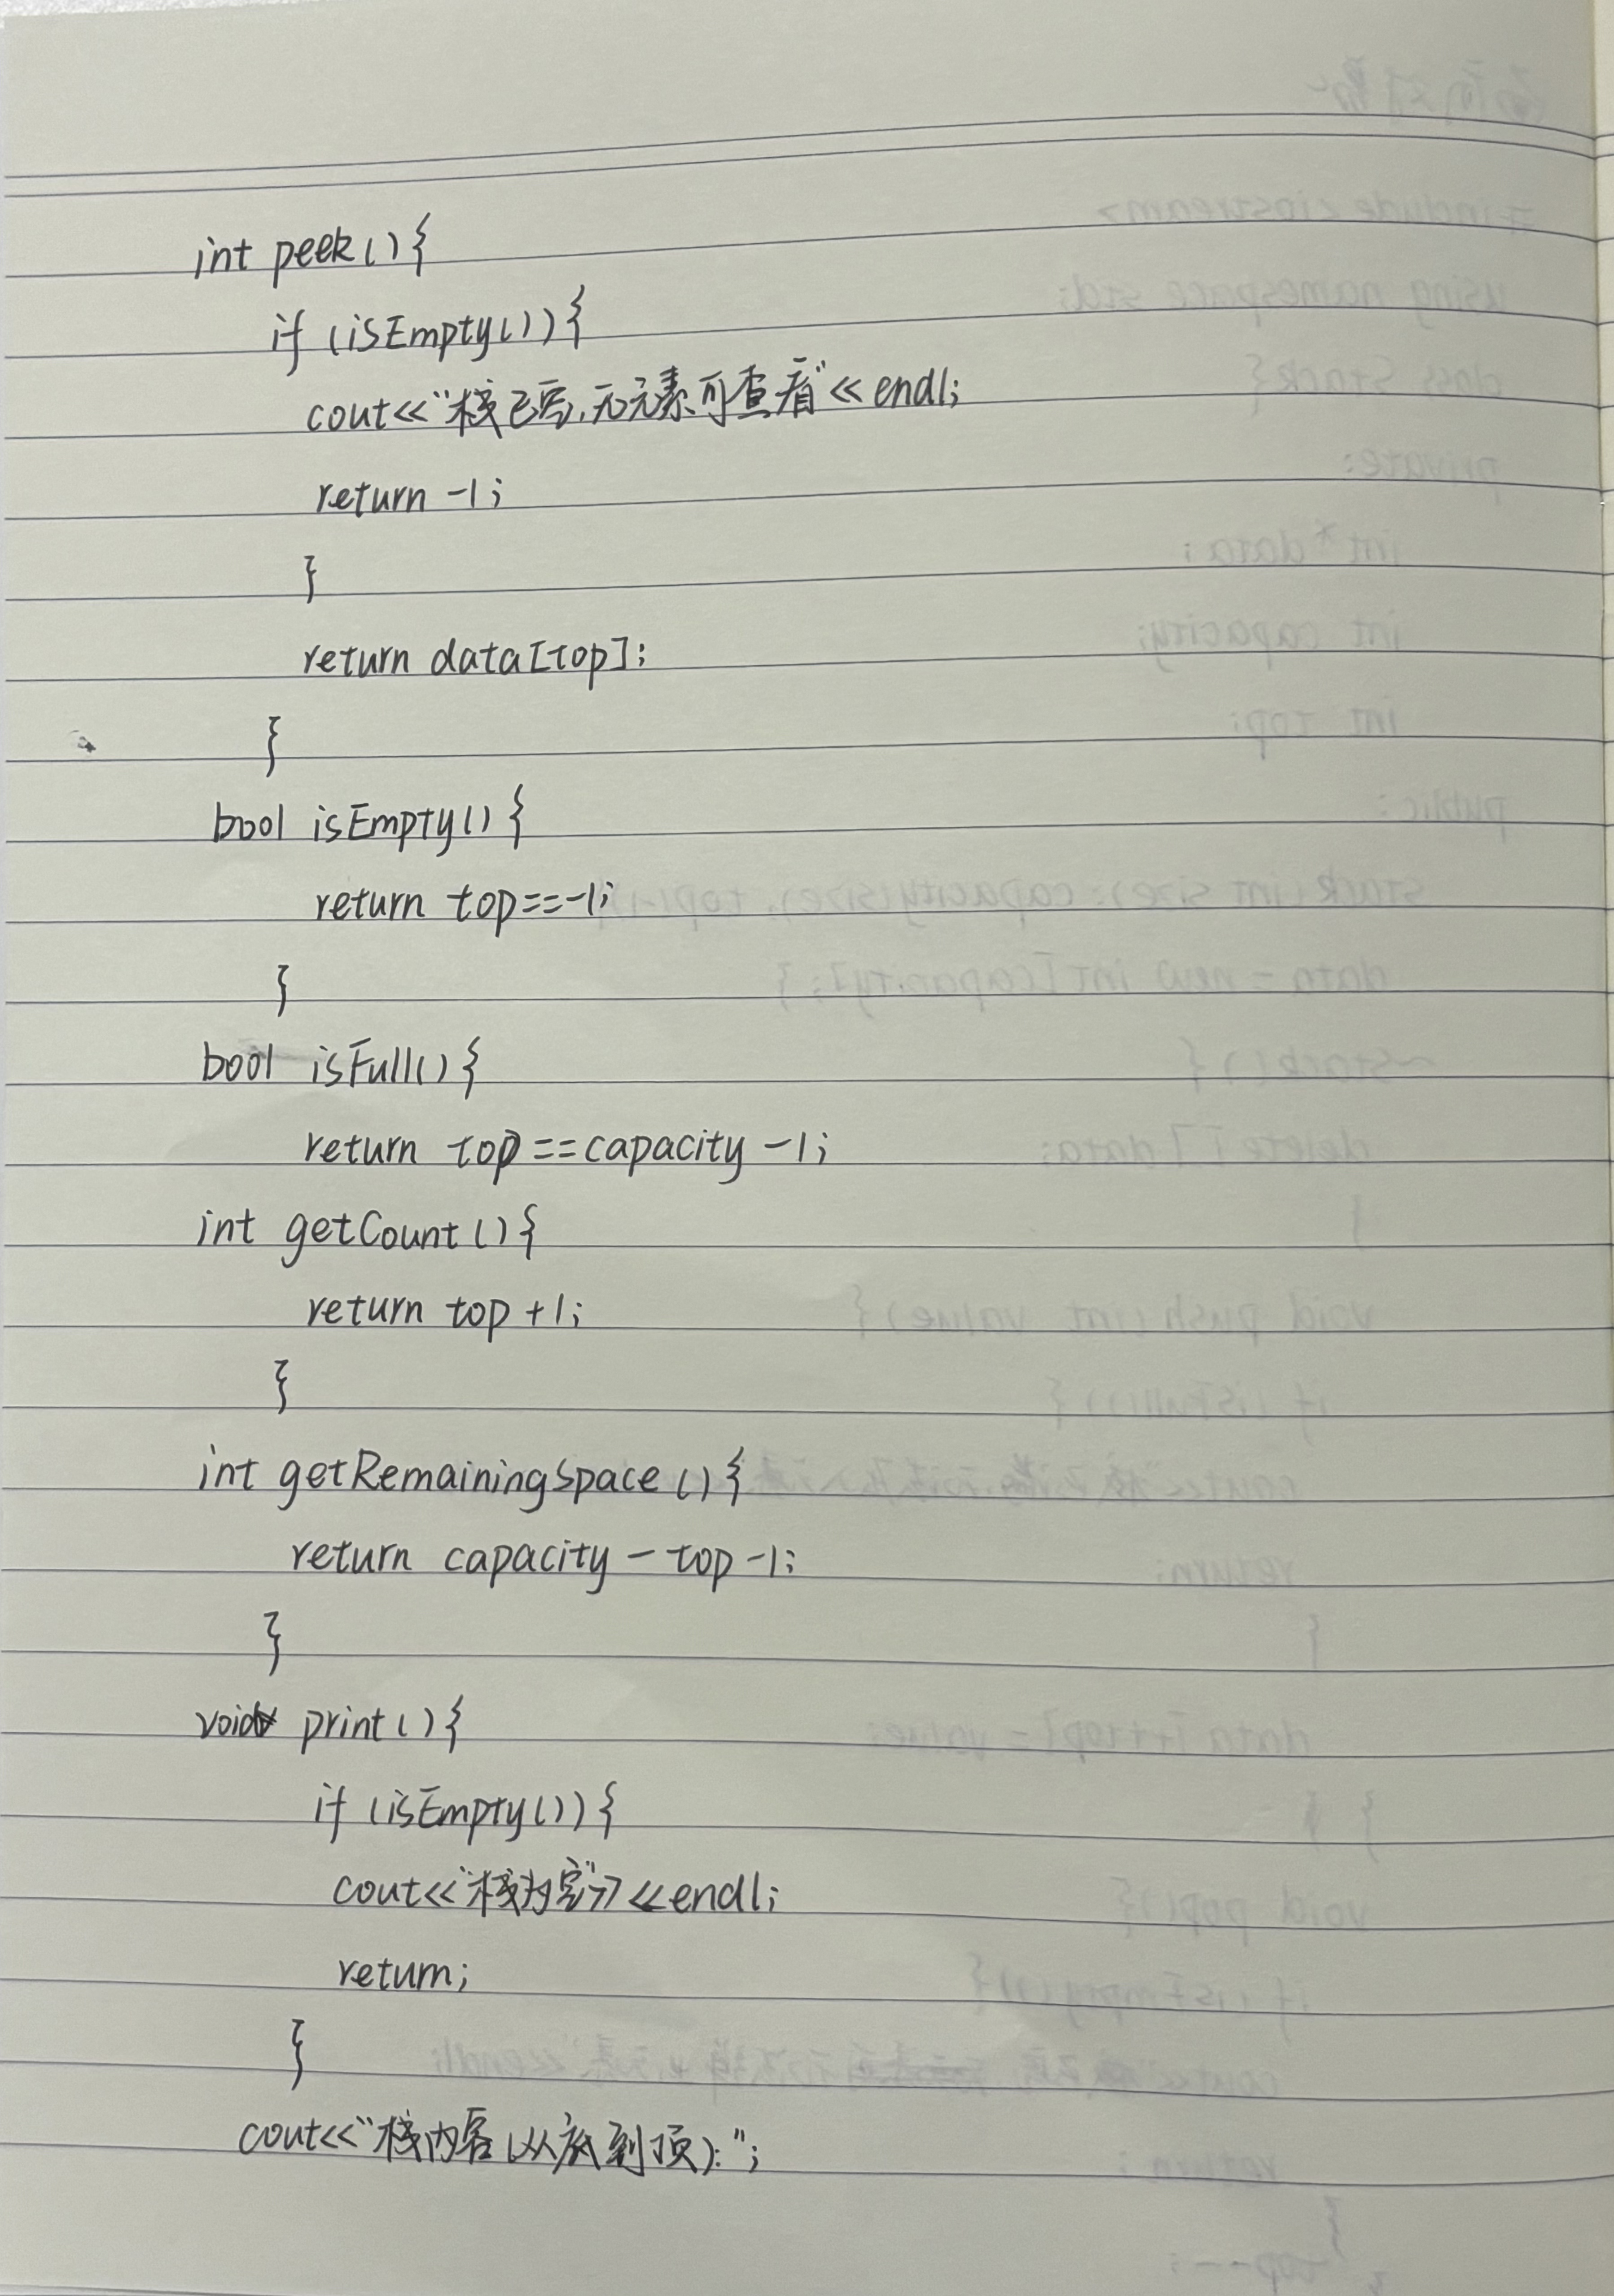 int peek(){
if (isEmpty()){
cout<<"栈已空,无元素可查看"<<endl;
return -1;
}
return data[top];
}
bool isEmpty(){
return top==-1;
}
bool isFull(){
return top==capacity-1;
int getCount(){
return top+1;
}
int getRemainingSpace(){
return capacity-top-1;
}
void print(){
if (isEmpty()){
cout<<"栈为空"<<endl;
return;
}
cout<<"栈内容(从底到顶):";